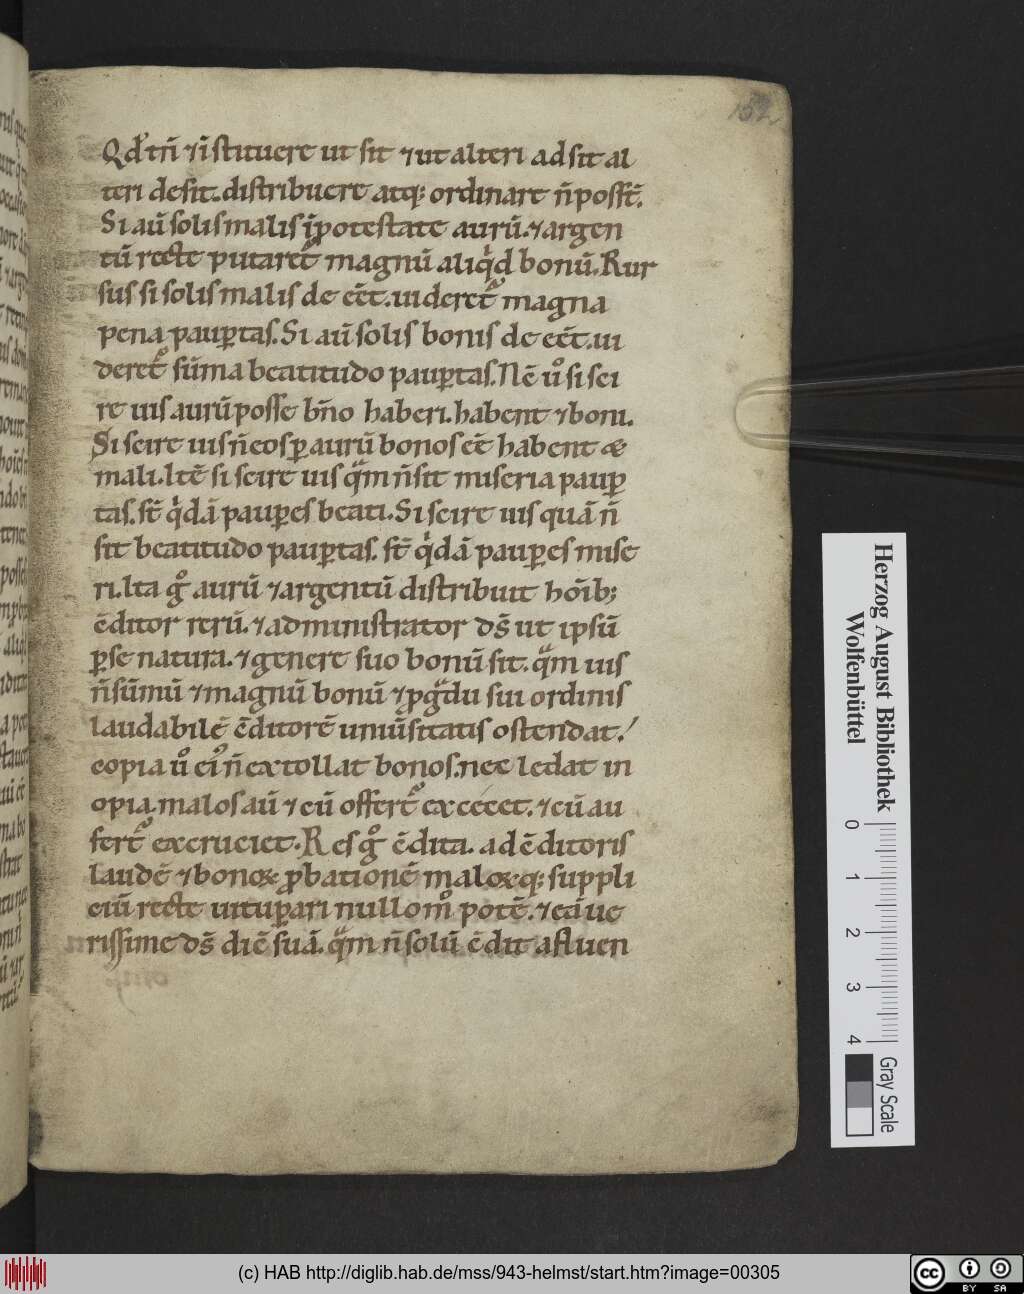 152
Qd̓ tñ ⁊ ı̄stituere ut sit ⁊ ut alteri adsit al
teri desit. distribuere atq; ordinare ñ posset̄.
Si aū solis malis ı̄ potestate aurū. ⁊ argen
tū recte putaret᷑ magnū aliqͥd bonū. Rur
sus si solis malis deeēt. uideret᷑ magna
pena pauꝑtas. Si aū solis bonis deeēt. ui
deret᷑ sūma beatitudo pauꝑtas. Nē uͦ si sci
re uis aurū posse bn̄o haberi. habent ⁊ boni.
Si scire uis ñ eos ꝑ aurū bonos eē habent &
mali. Itē si scire uis qᷓm ñ sit miseria pauꝑ
tas. st̄ qͥdā pauꝑes beati. Si scire uis quā ñ
sit beatitudo pauꝑtas. st̄ qͥdā pauꝑes mise
ri. Ita gͦ aurū ⁊ argentū distribuit hoīb;
c̄ditor rerū. ⁊ administrator ds̄ ut ipsū
ꝑ se natura. ⁊ genere suo bonū sit. qᷓm uis
ñ sūmū ⁊ magnū bonū ⁊ ꝓ gᷓdu sui ordinis
laudabilē c̄ditorē uniūsitatis ostendat!
copia uͦ ei᷒ ñ extollat bonos. nec ledat in
opia. malos aū ⁊ cū offert᷑ excecet. ⁊ cū au
fert᷑ excruciet. Res gͦ c̄dita. ad c̄ditoris
laudē ⁊ bonoꝝ ꝓbationē maloꝝq; suppli
ciū recte uituꝑari nullo mͦ potē. ⁊ eā ue
rissime ds̄ diē suā. qᷓm ñ solū c̄dit afluen
Herzog August Bibliothek
Wolfenbüttel
0 1 2 3 4
Gray Scale
(c) HAB http://diglib.hab.de/mss/943-helmst/start.htm?image=00305
cc BY SA